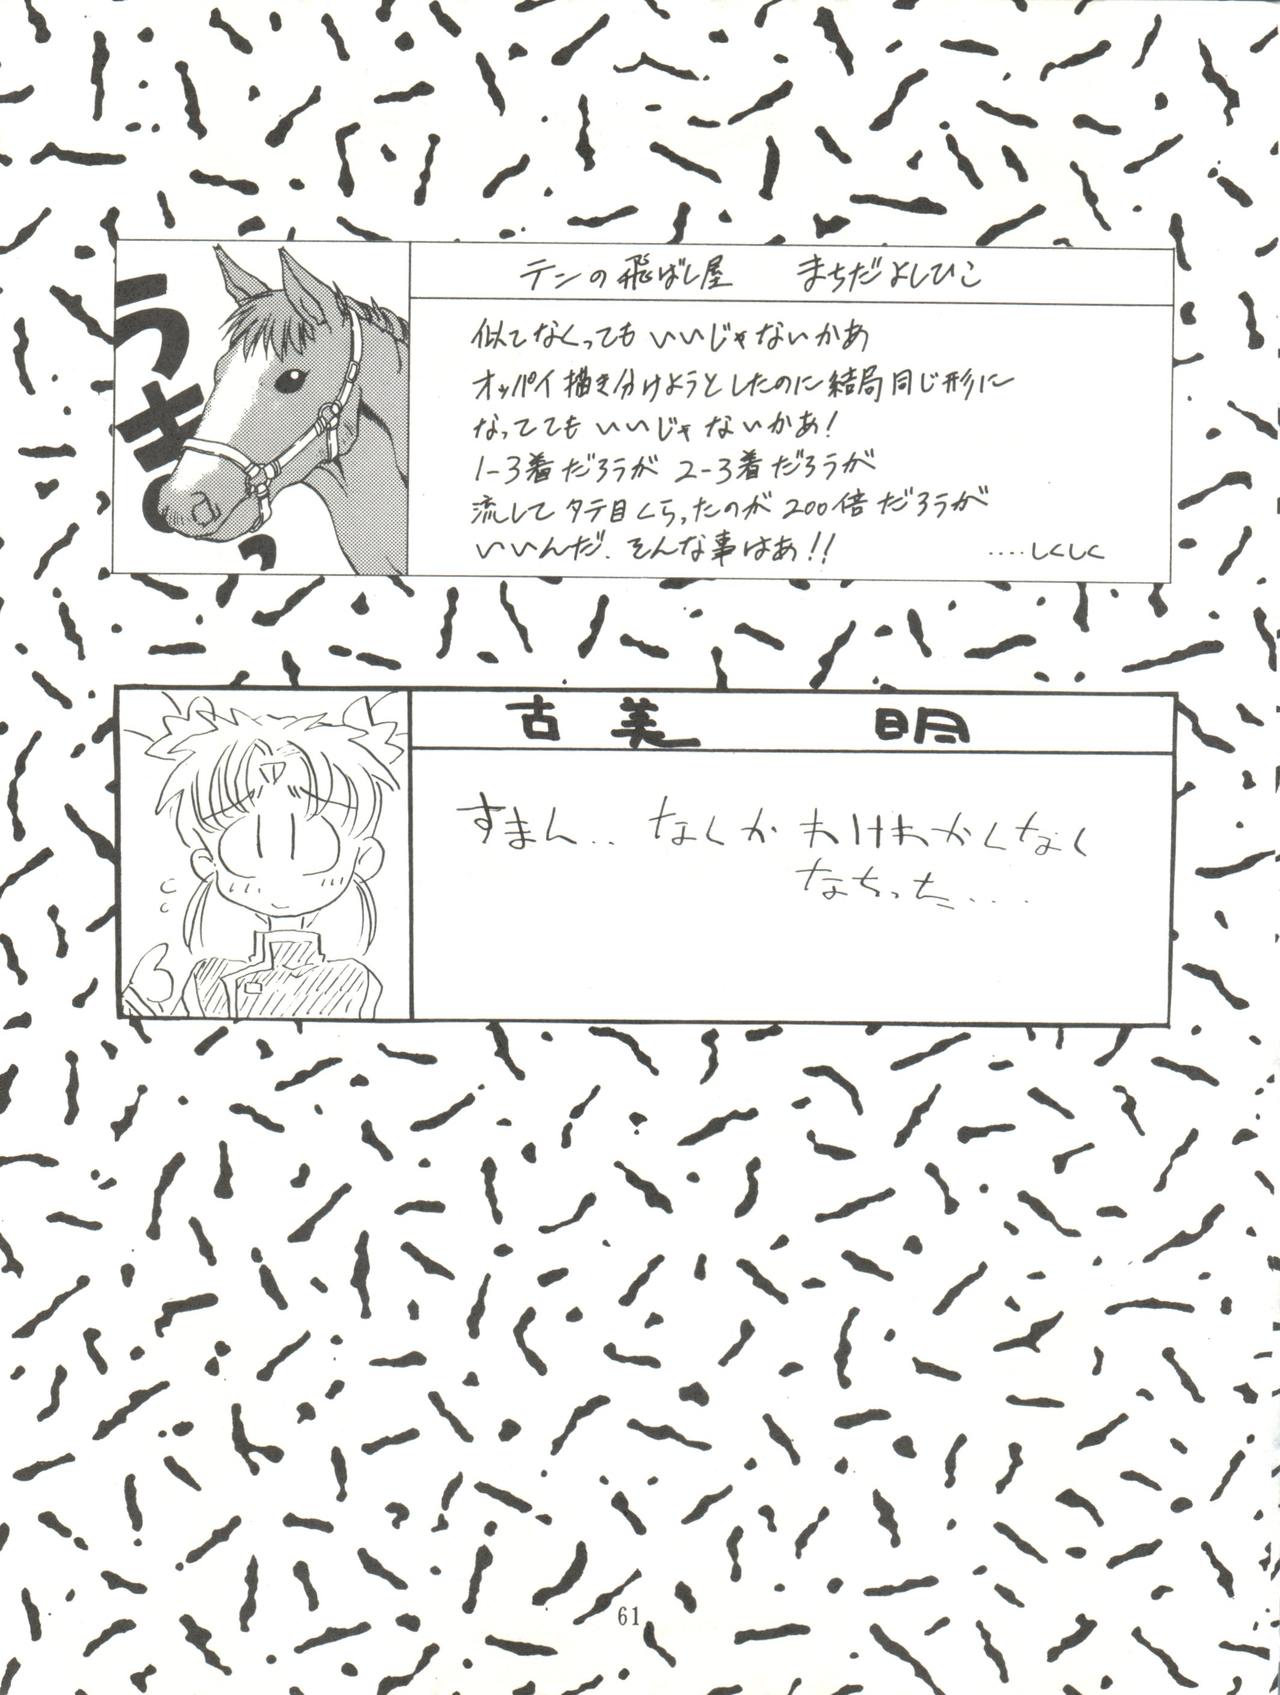 うきっ
テンの飛ばし屋　まちだよしひこ
似てなくってもいいじゃないかあ
オッパイ描き分けようとしたのに結局同じ形に
なっててもいいじゃないかあ！
1-3着だろうが 2-3着だろうが
流してタテ目くらったのが 200倍だろうが
いいんだ、そんな事はあ!!　....しくしく
古美　明
すまん... なくかわけわかくなく
なちった....
61